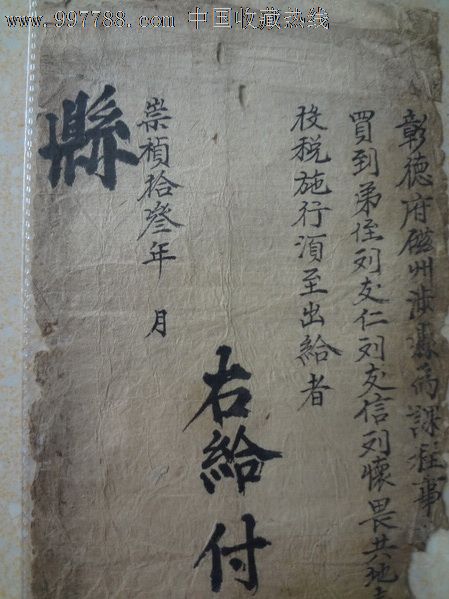 www.997788.com 中国收藏热线
彰德府磁州涉縣為課程事
買到弟侄列友仁列友信列懷畏共地
投税施行湏至出給者
右給付
崇禎拾叄年 月
縣